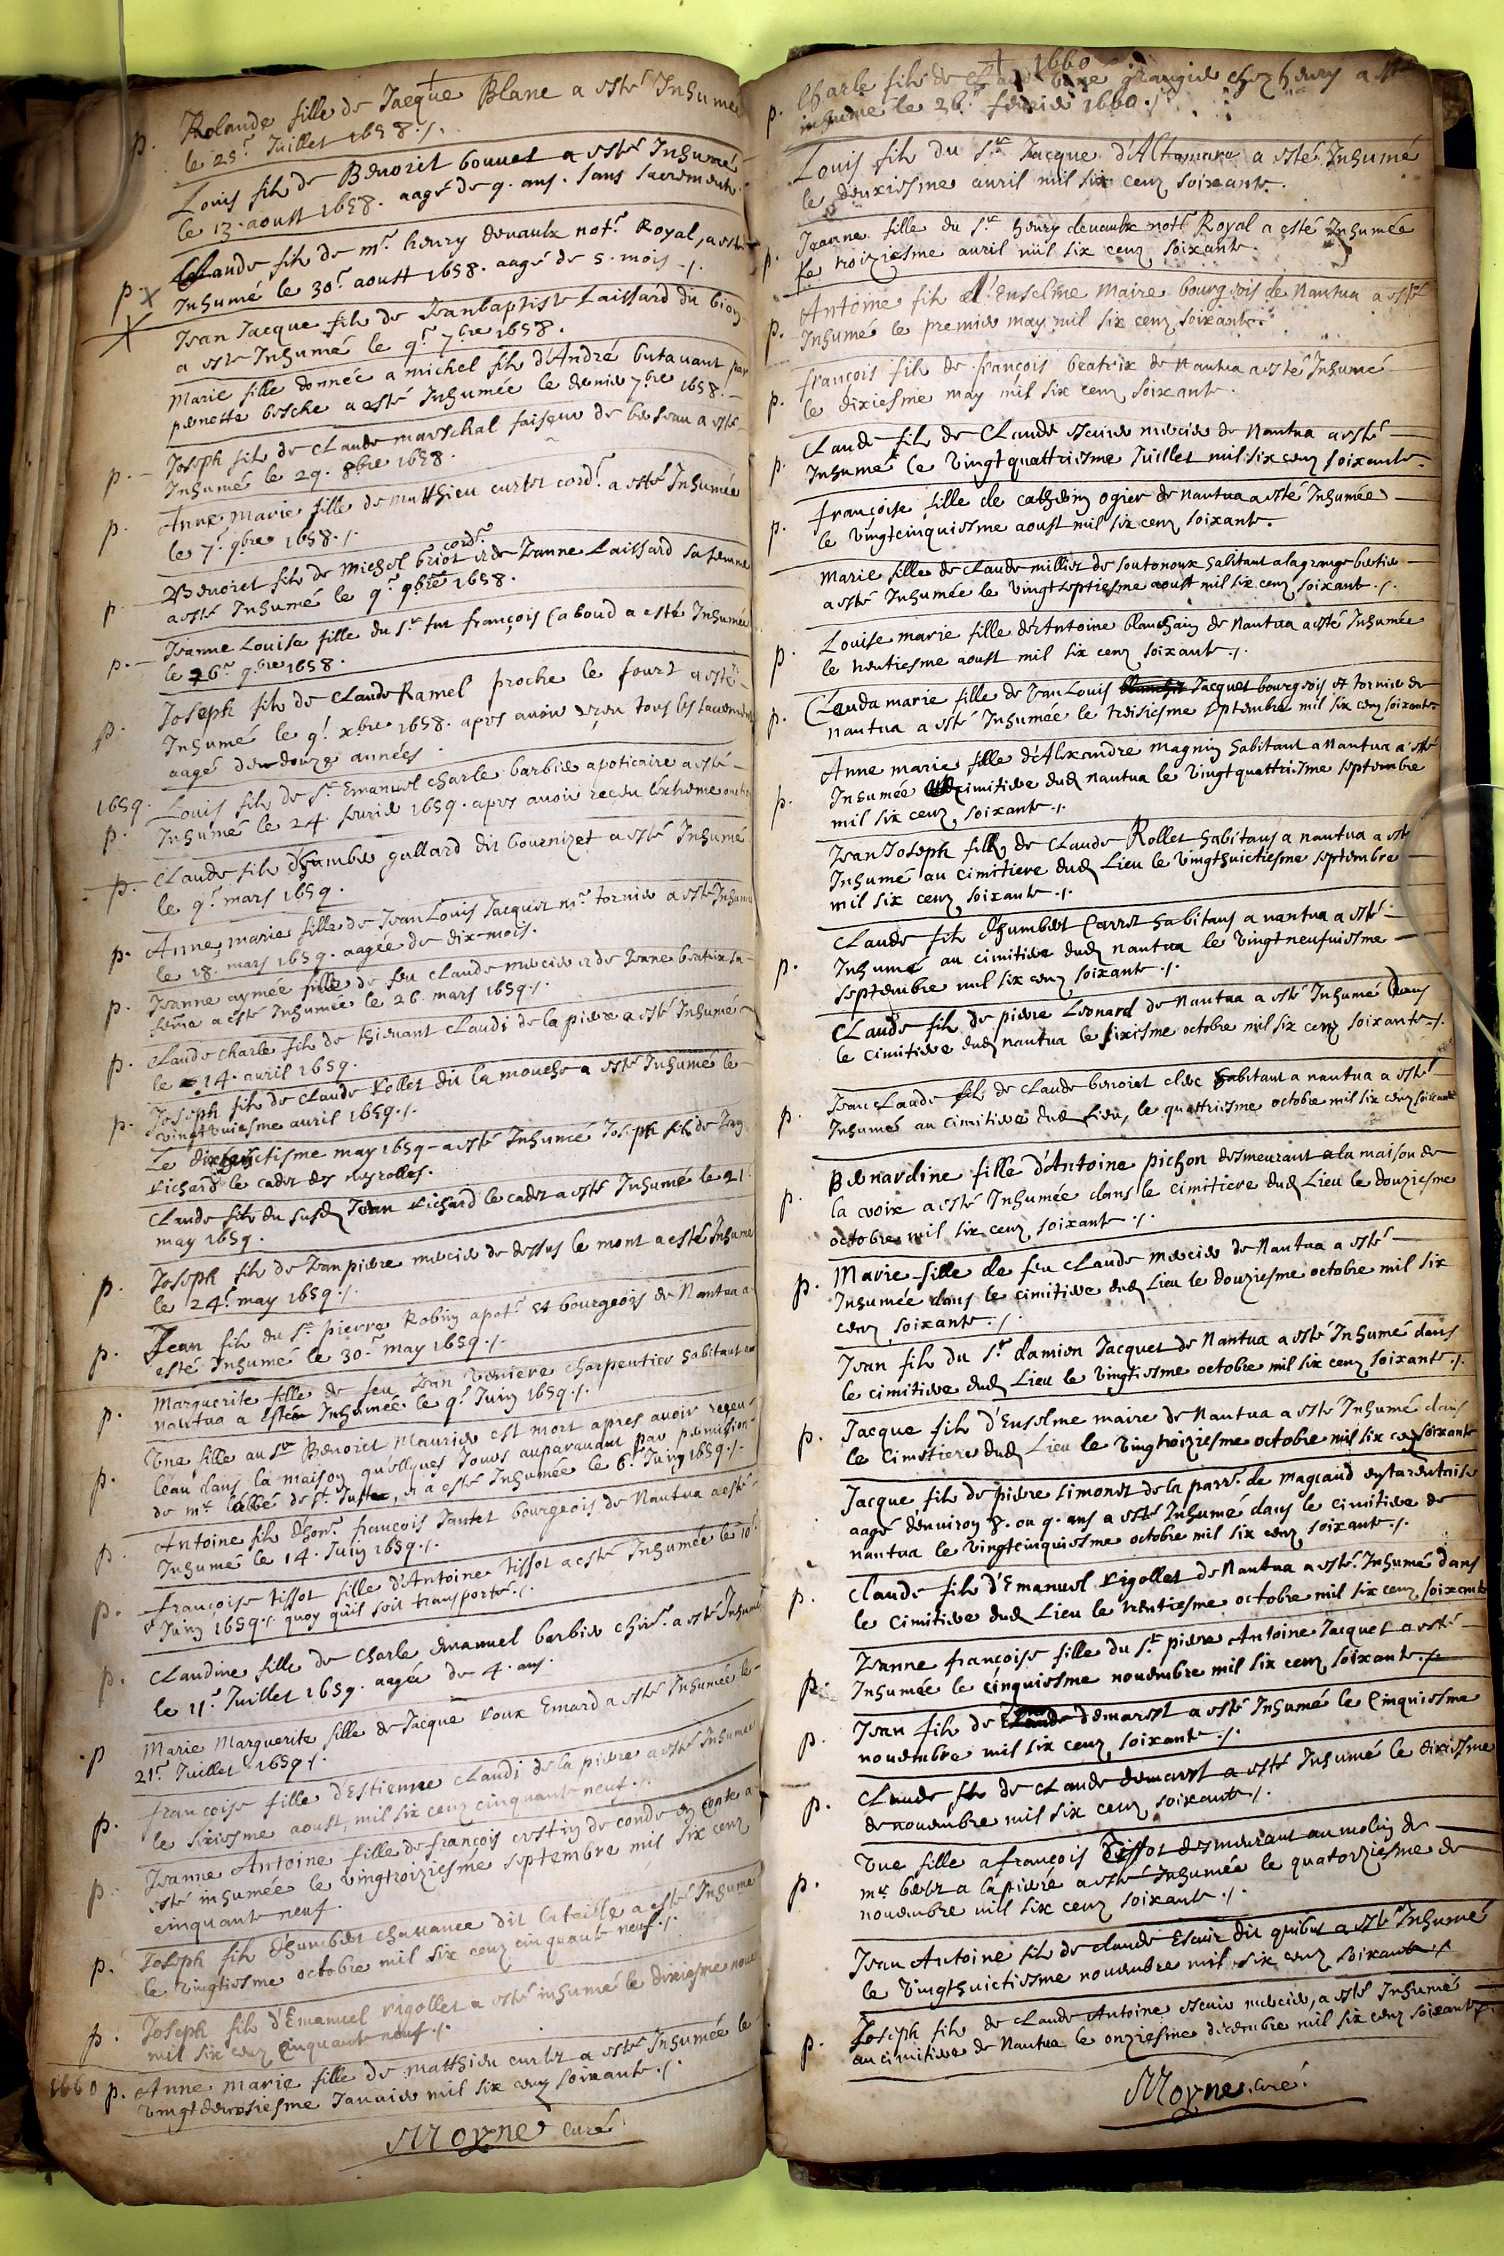 p. Rolande fille de Jacque Blanc a esté Inhumée
le 25.e Juillet 1658 ./.
Louis fils de Benoict bouuet a esté Inhumé
le 13. aoust 1658. aagé de 9. ans. sans sacrements
p. Claude fils de m.e henry deuaulx not.e Royal, a esté
Inhumé le 30.e aoust 1658. aagé de 5. mois ./.
Jean Jacque fils de Jeanbaptiste Laissard du
a esté Inhumé le 9.e 7bre 1658.
Marie fille donnée a michel fils d'André butauant par
pernette besche a esté Inhumée le dernier 7bre 1658.
p. Joseph fils de Claude mareschal faiseur de a esté
Inhumé le 29. 8bre 1658.
p. Anne Marie fille de matthieu curlet cord.r a esté Inhumée
le 7.e 9bre 1658 ./.
p. Benoict fils de Michel briot cord.r et de Jeanne Laissard sa femme
a esté Inhumé le 9.e 9bre 1658.
p. Jeanne Louise fille du s.r fut françois Caboud a esté Inhumée
le 26.e 9bre 1658.
p. Joseph fils de Claude Ramel proche le fourt a esté
Inhumé le 9.e xbre 1658. apres auoir reçeu tous les sacrements
aagé de douze années.
1659. Louis fils de s.r Emanuel charle barbier apoticaire a esté
p. Inhumé le 24. feurier 1659. apres auoir receu l'extreme onction
p. Claude fils d'humbert gallard dit bournizet a esté Inhumé
le 9.e mars 1659.
p. Anne marie fille de Jean Louis Jacquet m.e tornier a esté Inhumée
le 18. mars 1659. aagée de dix mois.
p. Jeanne aymée fille de feu Claude mercier et de Jeane beatrix sa
feme a esté Inhumée le 26. mars 1659 ./.
p. Claude charle fils de thieuant Claudi de la pierre a esté Inhumé
le 14. auril 1659.
p. Joseph fils de Claude rollet dit la mouche a esté Inhumé le
auril 1659 ./.
Le dixhuictisme may 1659 a esté Inhumé Joseph fils de Jean
richard le cadet des neyrolles.
Claude fils du susd. Jean richard le cadet a esté Inhumé le 21.
may 1659.
p. Joseph fils de Jean pierre mercier de dessus le mont a esté Inhumé
le 24.e may 1659 ./.
p. Jean fils du s.r pierre Robin apot.e et bourgeois de Nantua a
esté Inhumé le 30.e may 1659 ./.
p. Marguerite fille de feu Jean verniere charpentier habitant au
nantua a estée Inhumée le 9.e Juin 1659 ./.
p. Vne fille au s.r Benoict Maurier est mort apres auoir receu
l'eau dans la maison quelques Jours auparauant par permission
de m.r l'abbé de s.t Juste, et a esté Inhumée le 6.e Juin 1659 ./.
p. Antoine fils d'hon.e françois Jantet bourgeois de Nantua a esté
Inhumé le 14. Juin 1659 ./.
p. françoise tissot fille d'Antoine tissot a esté Inhumée le 10
Juin 1659 ./. quoy qu'il soit transporté ./.
p. Claudine fille de Charle emanuel barbier chir.n a esté Inhumée
le 11.e Juillet 1659. aagée de 4. ans.
p Marie Marguerite fille de Jacque roux Emard a esté Inhumée le
21.e Juillet 1659 ./.
p. françoise fille d'Estienne Claudi de la pierre a esté Inhumée
le sixiesme aoust, mil six cens cinquante neuf ./.
p. Jeanne Antoine fille de françois crestin de conde en conte a
esté inhumée le vingtroiziesme septembre mil six cens
cinquante neuf.
p. Joseph fils d'humbert chauance dit la taille a esté Inhumé
le vingtiesme octobre mil six cens cinquante neuf ./.
p. Joseph fils d'Emanuel rigollet a esté inhumé le dixiesme nouembre
mil six cens cinquante neuf ./.
1660 p. Anne marie fille de matthieu curlet a esté Inhumée le
vingt deuxiesme Januier mil six cens soixante ./.
Moyne curé.
1660
p. Charle fils de grangier chez henry a esté
inhumé le 26.e feurier 1660 ./.
Louis fils du s.r Jacque d'Altamare a esté Inhumé
le deuxiesme auril mil six cens soixante.
p. Jeanne fille du s.r henry deuaulx not.e Royal a esté Inhumée
le troiziesme auril mil six cens soixante.
p. Antoine fils d'Enselme Maire bourgeois de Nantua a esté
Inhumé le premier may mil six cens soixante.
p. françois fils de françois beatrix de Nantua a esté Inhumé
le dixiesme may mil six cens soixante.
p. Claude fils de Claude escuier mercier de Nantua a esté
Inhumé le vingtquattriesme Juillet mil six cens soixante.
p. françoise fille de cathelin ogier de nantua a esté Inhumée
le vingtcinquiesme aoust mil six cens soixante.
Marie fille de Claude millier de soutonoux habitant a la grange bertier
a esté Inhumée le vingtseptiesme aoust mil six cens soixante ./.
p. Louise marie fille de Antoine blanchain de Nantua a esté Inhumée
le trentiesme aoust mil six cens soixante ./.
p. Clauda marie fille de Jean Louis Jacquet bourgeois et tornier de
nantua a esté Inhumée le treisiesme septembre mil six cens soixante
p. Anne marie fille d'Alexandre magnin habitant a Nantua a esté
Inhumée cimitiere dud. nantua le vingtquattriesme septembre
mil six cens soixante ./.
Jean Joseph fils de Claude Rollet habitans a nantua a esté
Inhumé au cimitiere dud. Lieu le vingthuictiesme septembre
mil six cens soixante ./.
p. Claude fils d'humbert Carret habitans a nantua a esté
Inhumé au cimitiere dud. nantua le vingtneufuiesme
septembre mil six cens soixante ./.
Claude fils de pierre Leonard de Nantua a esté Inhumé dans
le cimitiere dud. nantua le sixiesme octobre mil six cens soixante ./.
p. Jean Claude fils de Claude benoict clerc habitant a nantua a esté
Inhumé au cimitiere dud. Lieu, le quattriesme octobre mil six cens soixante
p. Bernardine fille d'Antoine pichon desmeurant a la maison de
la croix a esté Inhumée dans le cimitiere dud. Lieu le douziesme
octobre mil six cens soixante ./.
p. Marie fille de feu Claude Mercier de Nantua a esté
Inhumée dans le cimitiere dud. Lieu le douziesme octobre mil six
cens soixante ./.
Jean fils du s.r damien Jacquet de Nantua a esté Inhumé dans
le cimitiere dud. Lieu le vingtiesme octobre mil six cens soixante ./.
p. Jacque fils d'Enselme maire de Nantua a esté Inhumé dans
le Cimitiere dud. Lieu le vingtroiziesme octobre mil six cens soixante
Jacque fils de pierre simonet de la parr.e de magland en tarentaise
aagé d'enuiron 8. ou 9. ans a esté Inhumé dans le cimitiere de
nantua le vingtcinquiesme octobre mil six cens soixante ./.
p. Claude fils d'Emanuel rigollet de Nantua a esté Inhumé dans
le Cimitiere dud. Lieu le trentiesme octobre mil six cens soixante
p. Jeanne françoise fille du s.r pierre Antoine Jacquet a esté
Inhumée le cinquiesme nouembre mil six cens soixante ./.
p. Jean fils de Claude demarest a esté Inhumé le Cinquiesme
nouembre mil six cens soixante ./.
p. Claude fils de Claude demarest a esté Inhumé le dixiesme
de nouembre mil six cens soixante ./.
p. Vne fille a françois tissot desmeurant au molin de
m.r a la pierre a esté Inhumée le quatorziesme de
nouembre mil six cens soixante ./.
Jean Antoine fils de claude Escuier dit quibet a esté Inhumé
le vingthuictiesme nouembre mil six cens soixante ./.
p. Joseph fils de Claude Antoine escuier mercier, a esté Inhumé
au cimitiere de Nantua le onziesme decembre mil six cens soixante ./.
Moyne curé.